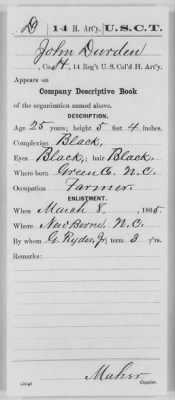 D | 14 H. Art'y, | U.S.C.T.
John Durden
, Co. H, 14 Reg't U. S. Col'd H. Art'y.
Appears on
Company Descriptive Book
of the organization named above.
DESCRIPTION.
Age 25 years; height 5 feet 4 inches.
Complexion Black,
Eyes Black,; hair Black,
Where born Green Co. N.C.
Occupation Farmer.
ENLISTMENT.
When March 8, 1865.
Where New Berne, N.C.
By whom G. Ryder, Jr; term 3 y'rs.
Remarks:
Maher
Copyist.